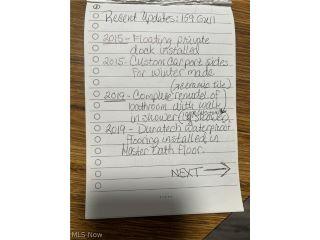 Recent Updates: 159 Gull
2015 - Floating private
dock installed
2015 - Custom Carport sides
for winter made
(ceramic tile)
2019 - Complete remodel of
bathroom with walk
in shower
2019 - Duratech waterproof
flooring installed in
Master Bath Floor.
NEXT →
MLS-Now